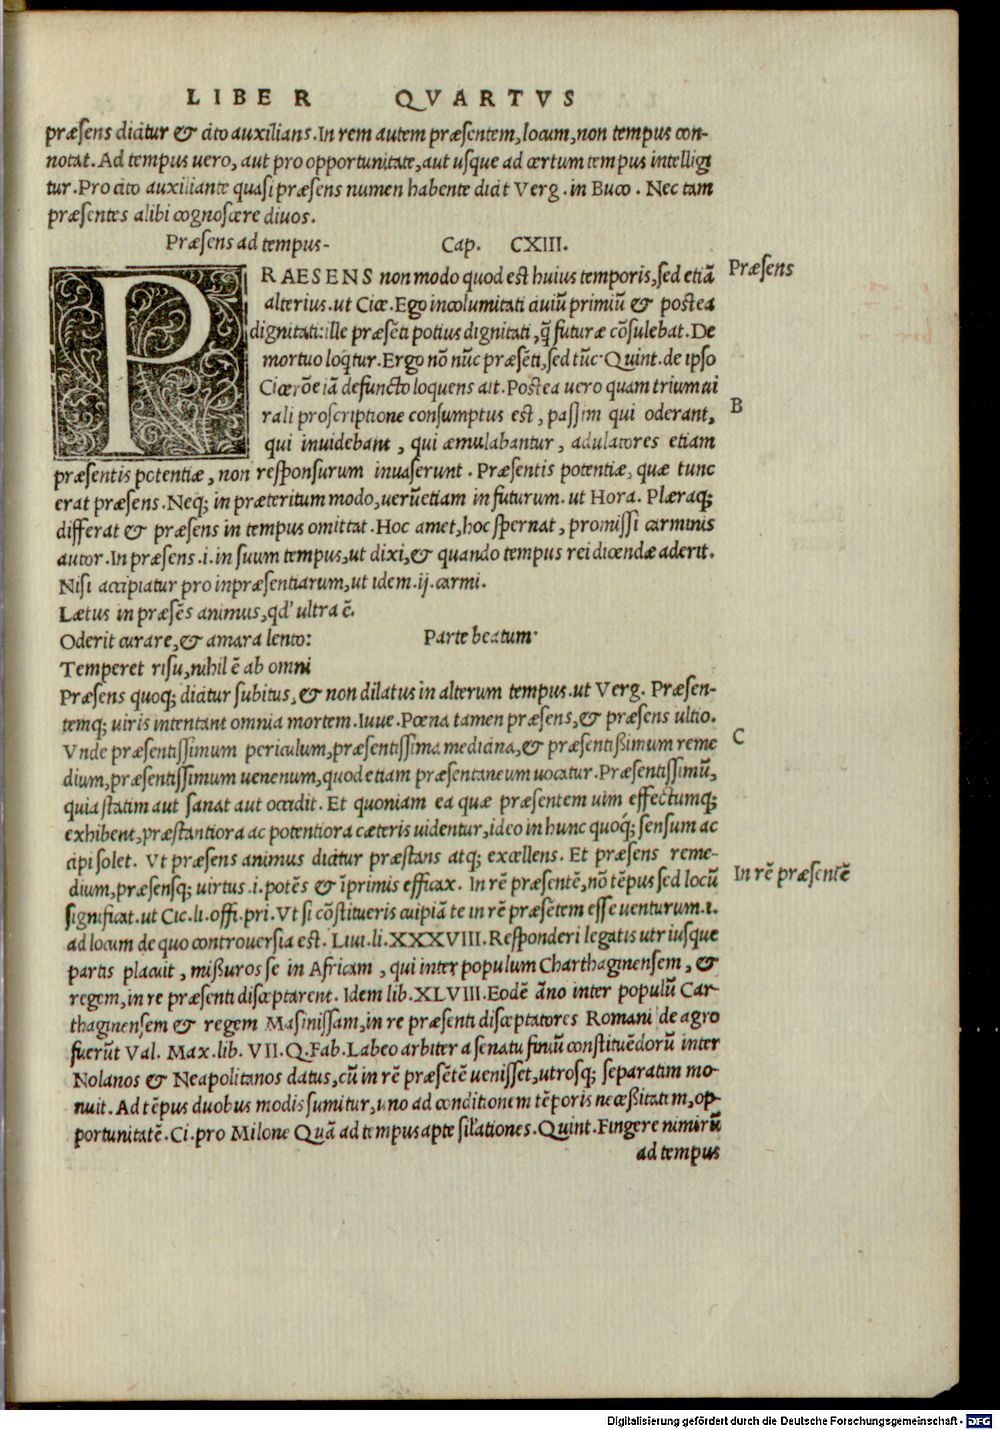 LIBER QVARTVS
præsens dicitur & cito auxilians. In rem autem præsentem, locum, non tempus con-
notat. Ad tempus uero, aut pro opportunitate, aut usque ad certum tempus intelligi
tur. Pro cito auxiliante quasi præsens numen habente dicit Verg. in Buco. Nec tam
præsentes alibi cognoscere diuos.
Præsens ad tempus- Cap. CXIII.
PRAESENS non modo quod est huius temporis, sed etiã
Præsens
alterius. ut Cice. Ego incolumitati ciuiũ primiũ & postea
dignitati: ille præsẽti potius dignitati, q̃ futuræ cõsulebat. De
mortuo loqtur. Ergo nõ nũc præsẽti, sed tũc. Quint. de ipso
Cicerõe iã defuncto loquens ait. Postea uero quam triumui
rali proscriptione consumptus est, passim qui oderant,
B
qui inuidebant, qui æmulabantur, adulatores etiam
præsentis potentiæ, non responsurum inuaserunt. Præsentis potentiæ, quæ tunc
erat præsens. Neq; in præteritum modo, uerũetiam in futurum. ut Hora. Plæraq;
differat & præsens in tempus omittat. Hoc amet, hoc spernat, promissi carminis
autor. In præsens .i. in suum tempus, ut dixi, & quando tempus rei dicendæ aderit.
Nisi accipiatur pro inpræsentiarum, ut idem .ij. carmi.
Lætus in præsẽs animus, qd' ultra ẽ.
Oderit curare, & amara lento: Parte beatum.
Temperet risu, nihil ẽ ab omni
Præsens quoq; dicitur subitus, & non dilatus in alterum tempus. ut Verg. Præsen-
temq; uiris intentant omnia mortem. Iuue. Pœna tamen præsens, & præsens ultio.
Vnde præsentissimum periculum, præsentissima medicina, & præsentißimum reme
C
dium, præsentissimum uenenum, quod etiam præsentaneum uocatur. Præsentissimũ,
quia statim aut sanat aut occidit. Et quoniam ea quæ præsentem uim effectumq;
exhibent, præstantiora ac potentiora cæteris uidentur, ideo in hunc quoq; sensum ac
cipi solet. Vt præsens animus dicitur præstans atq; excellens. Et præsens reme-
dium, præsensq; uirtus .i. potẽs & ĩprimis efficax. In rẽ præsentẽ, nõ tẽpus sed locũ
In rẽ præsentẽ
significat. ut Cic. li. offi. pri. Vt si cõstitueris cuipiã te in rẽ præsẽtem esse uenturum .i.
ad locum de quo controuersia est. Liui. li. XXXVIII. Responderi legatis utriusque
partis placuit, mißuros se in Africam, qui inter populum Charthaginensem, &
regem, in re præsenti disceptarent. Idem lib. XLVIII. Eodẽ ãno inter populũ Car-
thaginensem & regem Masinissam, in re præsenti disceptatores Romani de agro
fuerũt Val. Max. lib. VII. Q. Fab. Labeo arbiter a senatu finiũ constituẽdorũ inter
Nolanos & Neapolitanos datus, cũ in rẽ præsẽtẽ uenisset, utrosq; separatim mo-
nuit. Ad tẽpus duobus modis sumitur, uno ad conditionem tẽporis neceßitatem, op-
portunitatẽ. Ci. pro Milone Quã ad tempus apte silationes. Quint. Fingere nimirũ
ad tempus
Digitalisierung gefördert durch die Deutsche Forschungsgemeinschaft - DFG